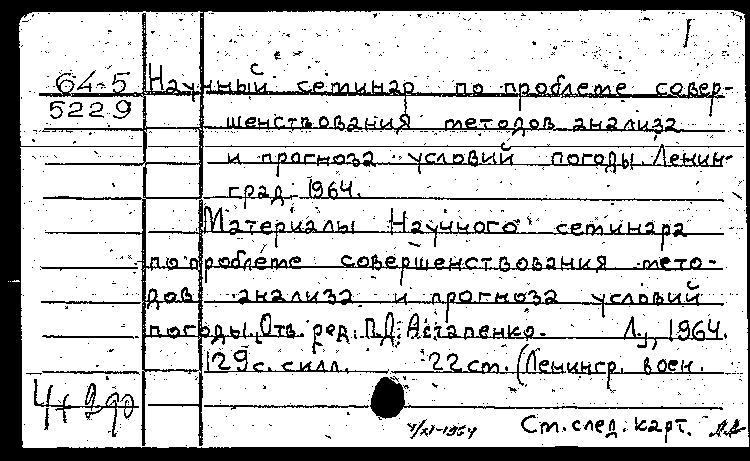 1
64-5 Научный семинар по проблеме совер-
5229 шенствования методов анализа
и прогноза условий погоды. Ленин-
град. 1964.
Материалы Научного семинара
по проблеме совершенствования мето-
дов анализа и прогноза условий
погоды. Отв. ред. П.Д. Астапенко. Л., 1964.
129 с. с илл. 22 см. (Ленингр. воен.
Ст. след. карт.